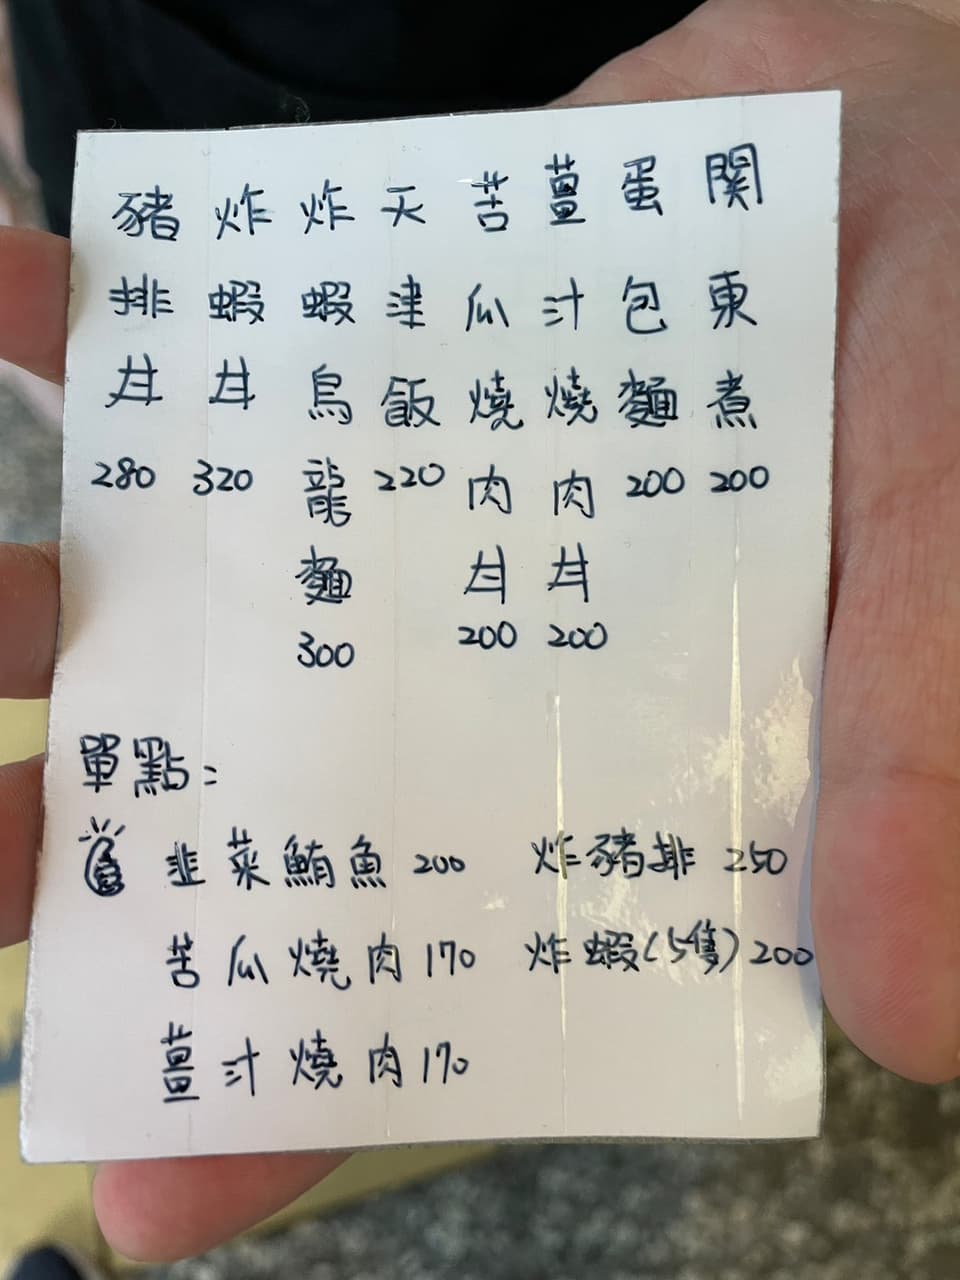 関東煮 200
蛋包麵 200
薑汁燒肉丼 200
苦瓜燒肉丼 200
天津飯 220
炸蝦鳥龍麵 300
炸蝦丼 320
豬排丼 280
單點:
韭菜鮪魚 200 炸豬排 250
苦瓜燒肉 170 炸蝦(5隻) 200
薑汁燒肉 170